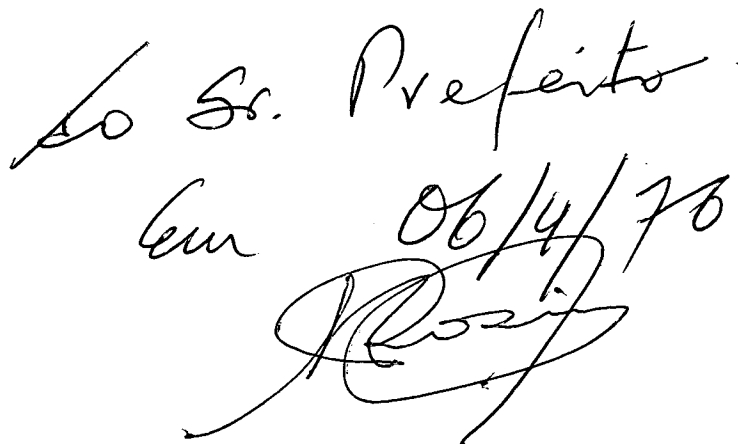 Ao Sr. Prefeito
Em 06/4/76